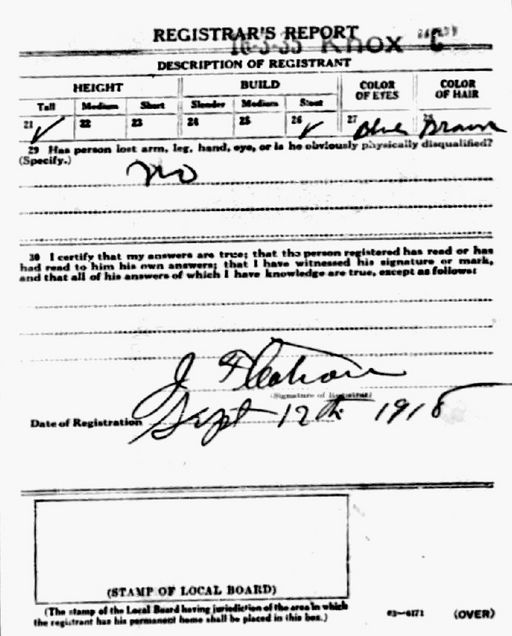 REGISTRAR'S REPORT
16-3-35 Knox C
DESCRIPTION OF REGISTRANT
HEIGHT BUILD COLOR OF EYES COLOR OF HAIR
Tall Medium Short Slender Medium Stout
21 ✓ 22 23 24 25 26 ✓ 27 Blue 28 Brown
29 Has person lost arm, leg, hand, eye, or is he obviously physically disqualified?
(Specify.)
No
30 I certify that my answers are true; that the person registered has read or has
had read to him his own answers; that I have witnessed his signature or mark,
and that all of his answers of which I have knowledge are true, except as follows:
J
(Signature of Registrar)
Date of Registration Sept 12th 1918
(STAMP OF LOCAL BOARD)
(The stamp of the Local Board having jurisdiction of the area in which
the registrant has his permanent home shall be placed in this box.)
03—6171 (OVER)